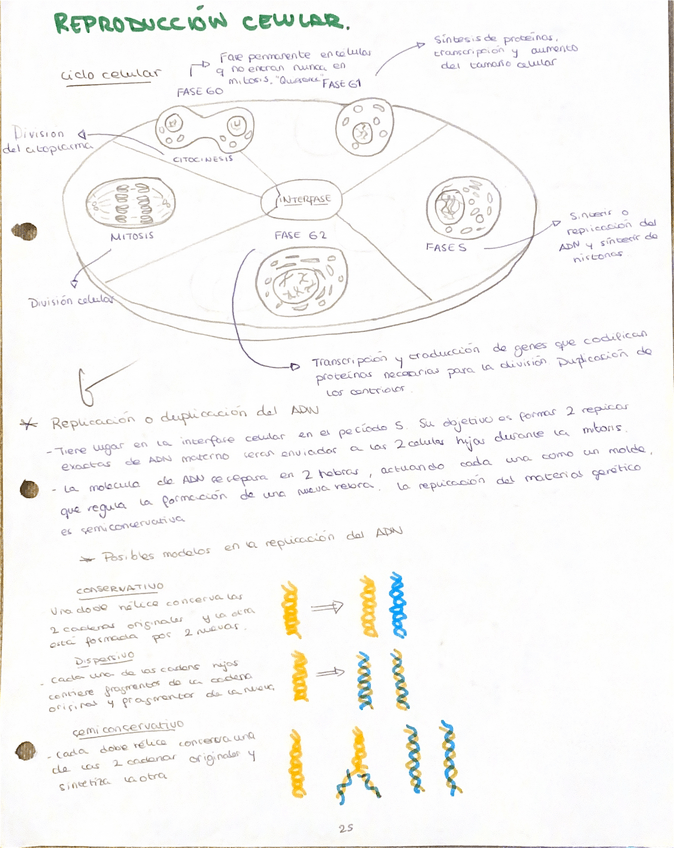 REPRODUCCIÓN CELULAR.
ciclo celular
Fase permanente en células
q no entran nunca en
mitosis, "Quiescente"
FASE G0
FASE G1
Síntesis de proteínas,
transcripción y aumento
del tamaño celular
División
del citoplasma
CITOCINESIS
INTERFASE
MITOSIS
FASE G2
FASE S
Síntesis o
replicación del
ADN y síntesis de
histonas.
División celular
Transcripción y traducción de genes que codifican
proteínas necesarias para la división Duplicación de
los centriolos.
* Replicación o duplicación del ADN
- Tiene lugar en la interfase celular en el período S. Su objetivo es formar 2 replicas
exactas de ADN materno seran enviados a las 2 celulas hijas durante la mitosis.
- La molecula de ADN se separa en 2 hebras, actuando cada una como un molde,
que regula la formación de una nueva hebra. La replicación del material genético
es semiconservativa
* Posibles modelos en la replicación del ADN
CONSERVATIVO
Una doble hélice conserva las
2 cadenas originales y la otra
está formada por 2 nuevas.
DISPERSIVO
- Cada una de las cadenas hijas
contiene fragmentos de la cadena
original y fragmentos de la nueva.
semiconservativo
- Cada doble hélice conserva una
de las 2 cadenas originales y
sintetiza la otra
25